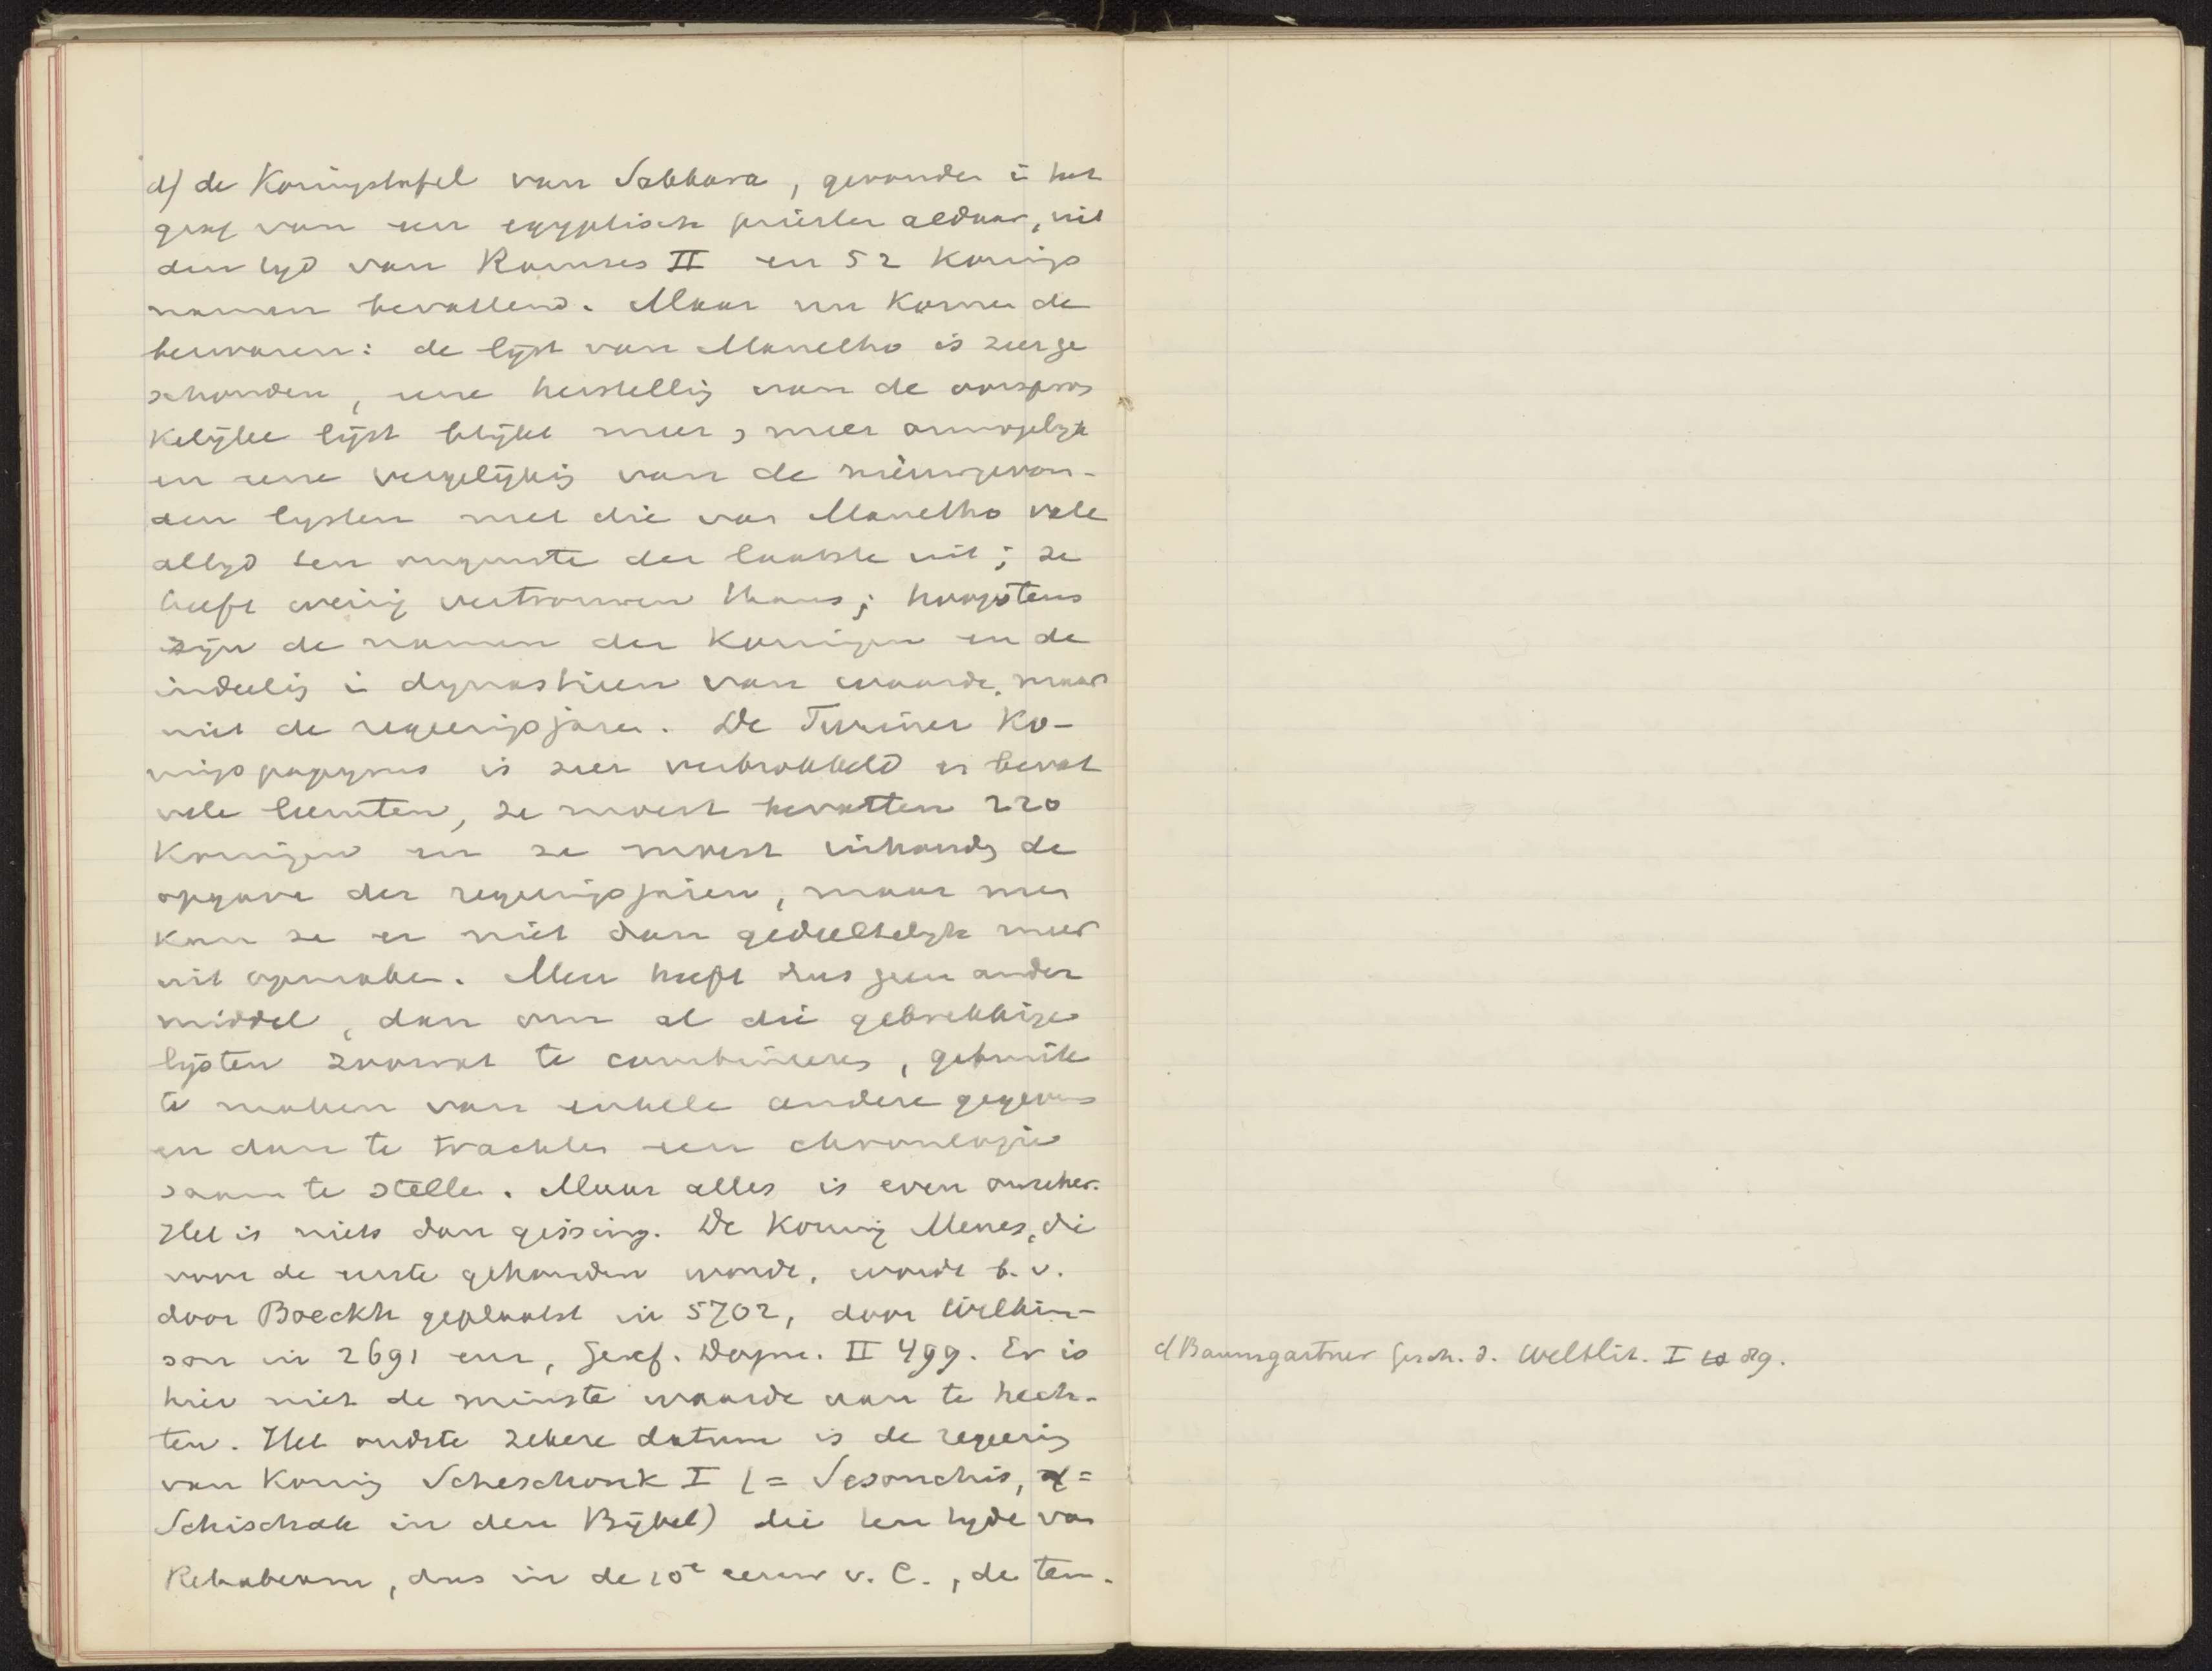 d) de Koningstafel van Sakkara, gevonden in het
graf van een egyptisch priester aldaar, uit
den tyd van Ramses II en 52 Konings
namen bevattend. Maar nu komen de
bezwaren: de lijst van Manetho is zeer ge
schonden, eene herstellig van de oorspron
kelijke lijst blijkt meer & meer onmogelyk
en eene vergelijkig van de nieuwgevon-
den lysten met die van Manetho valt
altyd ten ongunste der laatste uit; ze
heeft weinig vertrouwen thans; hoogstens
zijn de namen der Koningen en de
indeelig in dynastieen van waarde, maar
niet de regeeringsjaren. De Turiner Ko-
ningspapyrus is zeer verbrokkeld en bevat
vele leemten, ze moest bevatten 220
Koningen en ze moest inhoudn de
opgave der regeringsjaren, maar men
kan ze er niet dan gedeeltelyk meer
uit opmaken. Men heeft dus geen ander
middel, dan om al die gebrekkige
lijsten zoowat te combineeren, gebruik
te maken van enkele andere gegevens
en dan te trachten een chronlogie
saam te stellen. Maar alles is even onzeker.
Het is niets dan gissing. De Koning Menes, die
voor de eerste gehouden wordt, wordt b.v.
door Boeckh geplaatst in 5702, door Wilkin-
son in 2691 enz, Geref. Dogm. II 499. Er is
hier niet de minste waarde aan te hech-
ten. Het oudste zekere datum is de regeerig
van Konig Scheschonk I (= Sesonchis, =
Schischak in den Bijbel) die ten tyde van
Rehabeam, dus in de 10e eeuw v. C., de tem-
cf Baumgartner Gesch. d. Weltlit. I 89.